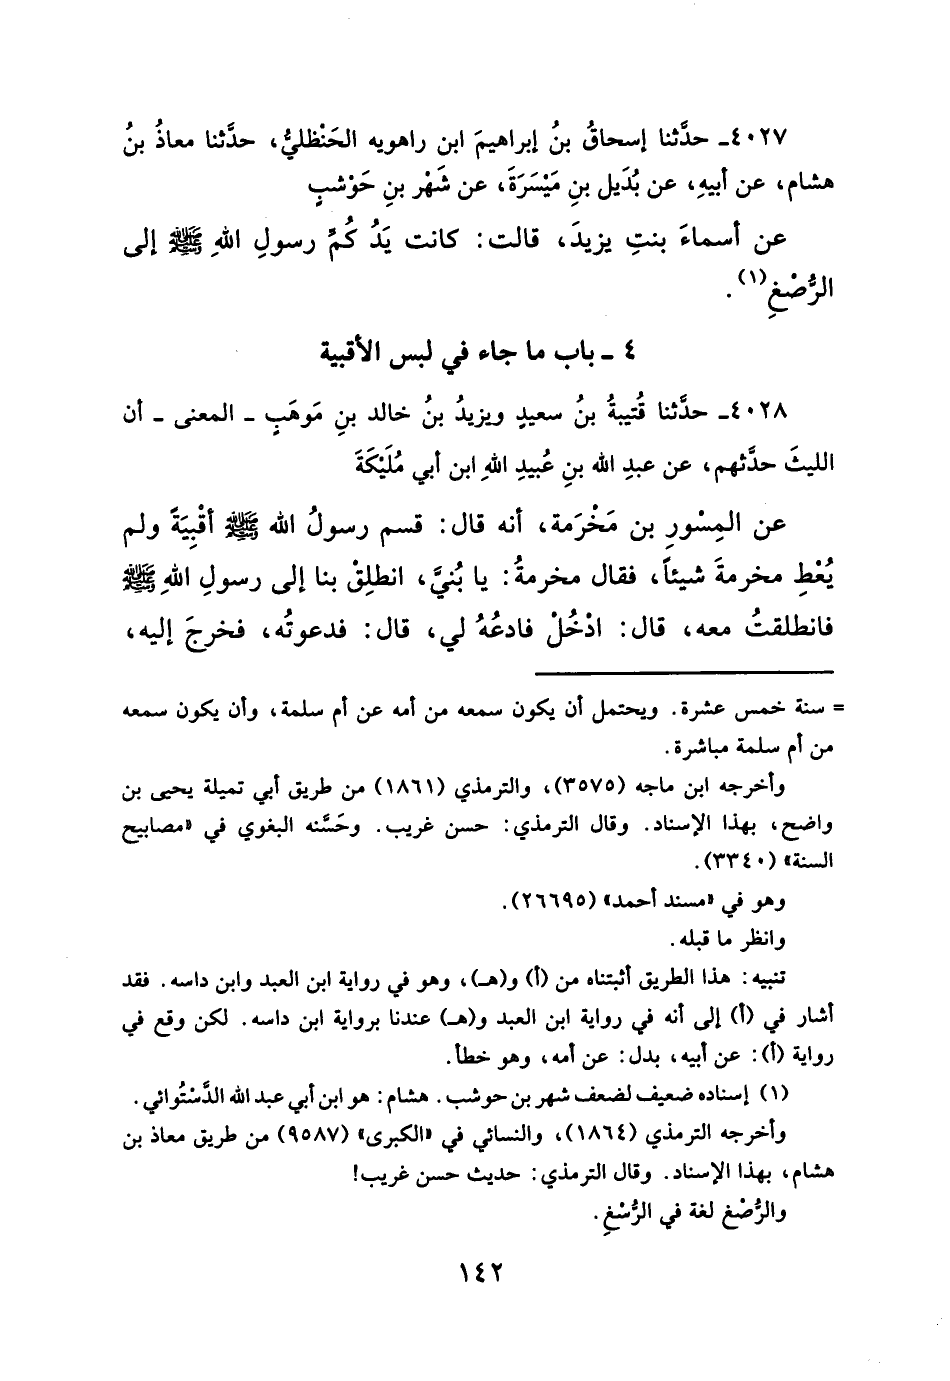 ٤٠٢٧ـ حدَّثنا إسحاقُ بنُ إبراهيمَ ابن راهويه الحَنْظليُّ، حدَّثنا معاذُ بنُ
هشام، عن أبيهِ، عن بُدَيل بنِ مَيْسَرَةَ، عن شَهْر بنِ حَوْشبٍ
عن أسماءَ بنتِ يزيدَ، قالت: كانت يَدُ كُمِّ رسولِ اللهِ ﷺ إلى
الرُّصْغِ(١).
٤ ـ باب ما جاء في لبس الأقبية
٤٠٢٨ـ حدَّثنا قُتيبةُ بنُ سعيدٍ ويزيدُ بنُ خالد بنِ مَوهَبٍ ـ المعنى ـ أن
الليثَ حدَّثهم، عن عبدِ الله بنِ عُبيدِ اللهِ ابن أبي مُلَيْكَةَ
عن المِسْورِ بن مَخْرَمة، أنه قال: قسم رسولُ الله ﷺ أقْبِيَةً ولم
يُعْطِ مخرمةَ شيئاً، فقال مخرمةُ: يا بُنيَّ، انطلِقْ بنا إلى رسولِ اللهِ ﷺ
فانطلقتُ معه، قال: ادْخُلْ فادعُهُ لي، قال: فدعوتُه، فخرجَ إليه،
= سنة خمس عشرة. ويحتمل أن يكون سمعه من أمه عن أم سلمة، وأن يكون سمعه
من أم سلمة مباشرة.
وأخرجه ابن ماجه (٣٥٧٥)، والترمذي (١٨٦١) من طريق أبي تميلة يحيى بن
واضح، بهذا الإسناد. وقال الترمذي: حسن غريب. وحَسَّنه البغوي في «مصابيح
السنة» (٣٣٤٠).
وهو في «مسند أحمد» (٢٦٦٩٥).
وانظر ما قبله.
تنبيه: هذا الطريق أثبتناه من (أ) و(هـ)، وهو في رواية ابن العبد وابن داسه. فقد
أشار في (أ) إلى أنه في رواية ابن العبد و(هـ) عندنا برواية ابن داسه. لكن وقع في
رواية (أ): عن أبيه، بدل: عن أمه، وهو خطأ.
(١) إسناده ضعيف لضعف شهر بن حوشب. هشام: هو ابن أبي عبد الله الدَّسْتُوائي.
وأخرجه الترمذي (١٨٦٤)، والنسائي في «الكبرى» (٩٥٨٧) من طريق معاذ بن
هشام، بهذا الإسناد. وقال الترمذي: حديث حسن غريب!
والرُّصْغ لغة في الرُّسْغِ.
١٤٢